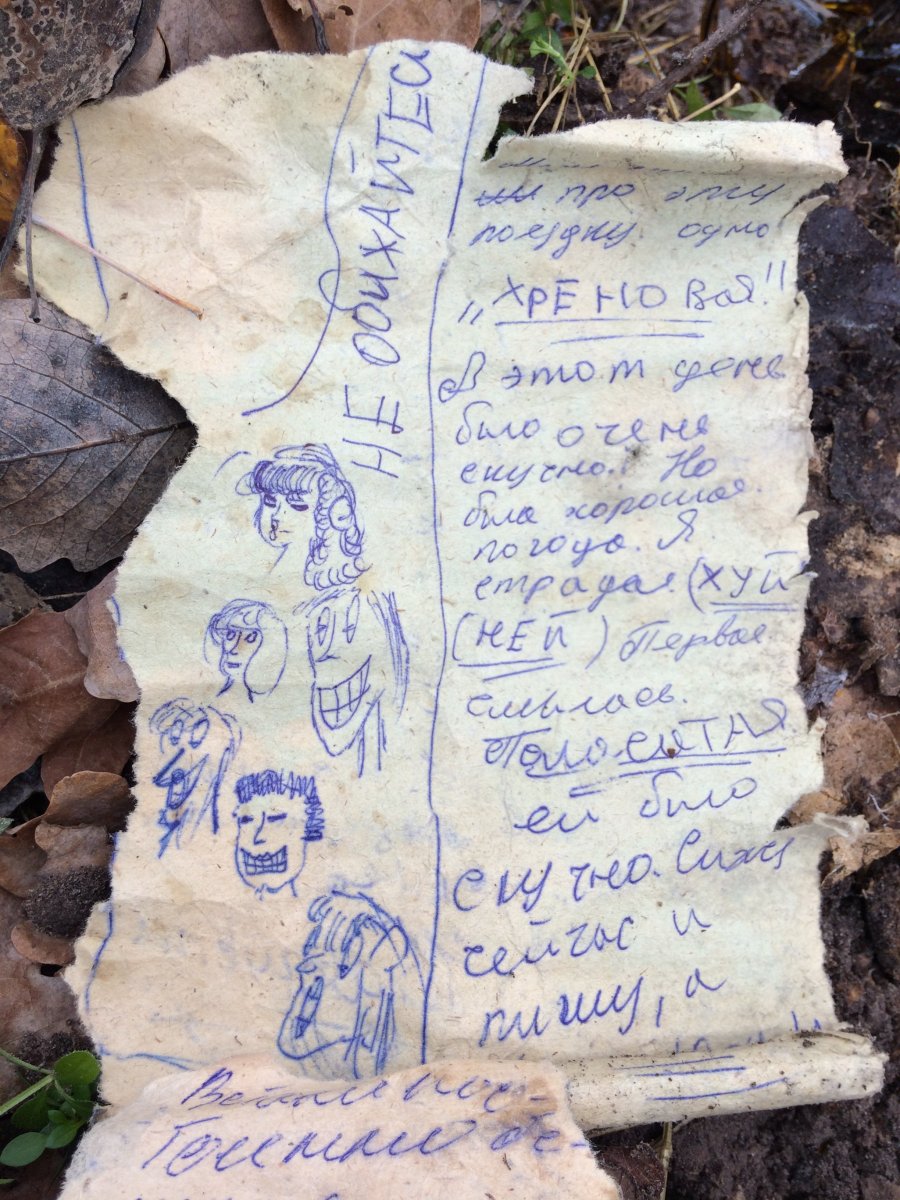 НЕ ОБИХАЙТЕСЬ
про эту
поездку одно
„ХРЕНОвая!!
В этот день
было очень
скучно. Но
была хорошая
погода. Я
страдал (ХУЙ
НЕЙ) Первая
смылась.
ПолоСАТАЯ
ей было
скучно. Сижу
сейчас и
пишу, а